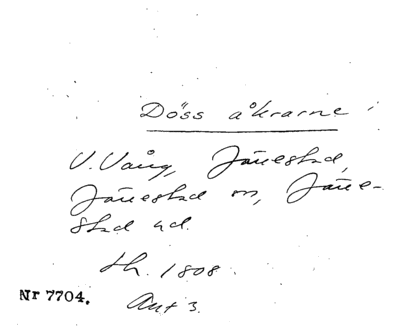 Döss åkrarne
V. Vång, Jänestad,
Jänestad m, Jäne-
stad ud.
th. 1808.
Nr 7704. Akt 3.